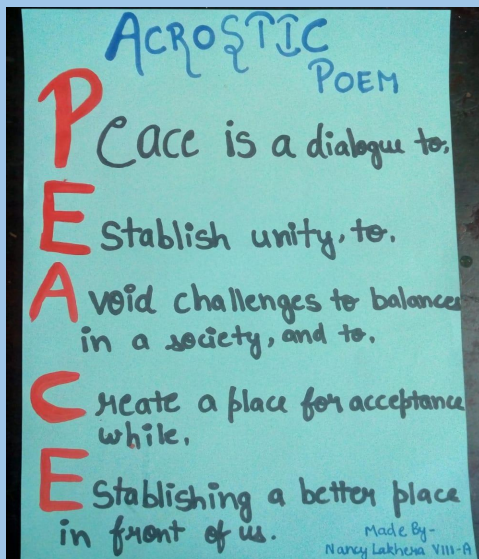 ACROSTIC
POEM
Peace is a dialogue to,
Establish unity, to.
Avoid challenges to balances
in a society, and to,
Create a place for acceptance
while,
Establishing a better place
in front of us.
Made By-
Nancy Lakhera VIII-A